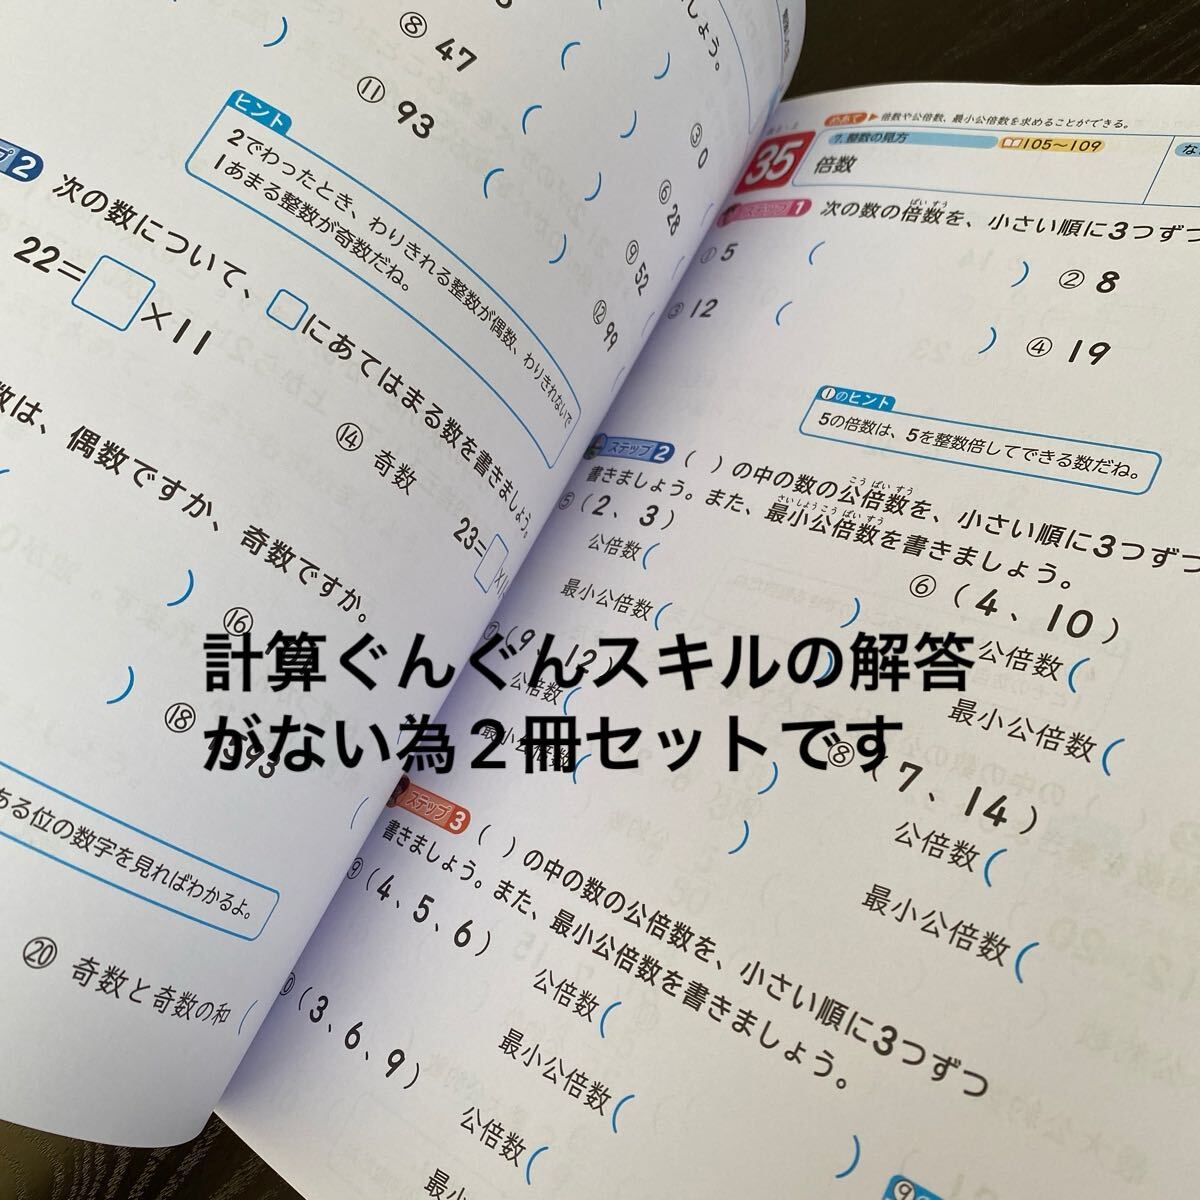 ⑧ 47
⑪ 93
③ 0
⑥ 28
⑨ 52
⑫ 99
ヒント
2でわったとき、わりきれる整数が偶数、わりきれないで
1あまる整数が奇数だね。
2
次の数について、□にあてはまる数を書きましょう。
22=□×11
⑭ 奇数
23=□×11
数は、偶数ですか、奇数ですか。
⑯
⑱ 4393
ある位の数字を見ればわかるよ。
⑳ 奇数と奇数の和
めあて ▶ 倍数や公倍数、最小公倍数を求めることができる。
35
7. 整数の見方
105~109
倍数
な
ステップ1
次の数の倍数を、小さい順に3つずつ
ばいすう
① 5
② 8
③ 12
④ 19
①のヒント
5の倍数は、5を整数倍してできる数だね。
ステップ2
( )の中の数の公倍数を、小さい順に3つずつ
こうばいすう
書きましょう。また、最小公倍数を書きましょう。
さいしょうこうばいすう
⑤ (2、3)
公倍数(
最小公倍数(
⑥ (4、10)
公倍数(
最小公倍数(
⑦ (9、12)
公倍数(
最小公倍数(
⑧ (7、14)
公倍数(
最小公倍数(
計算ぐんぐんスキルの解答
がない為2冊セットです
ステップ3
( )の中の数の公倍数を、小さい順に3つずつ
書きましょう。また、最小公倍数を書きましょう。
⑨ (4、5、6)
公倍数(
最小公倍数(
(3、6、9)
公倍数(
最小